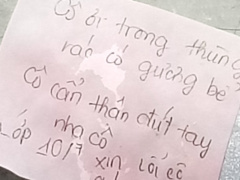 Cô ơi trong thùng
rác có gương bể
Cô cẩn thận đứt tay
nha cô
Lớp 10/7
xin lỗi cô